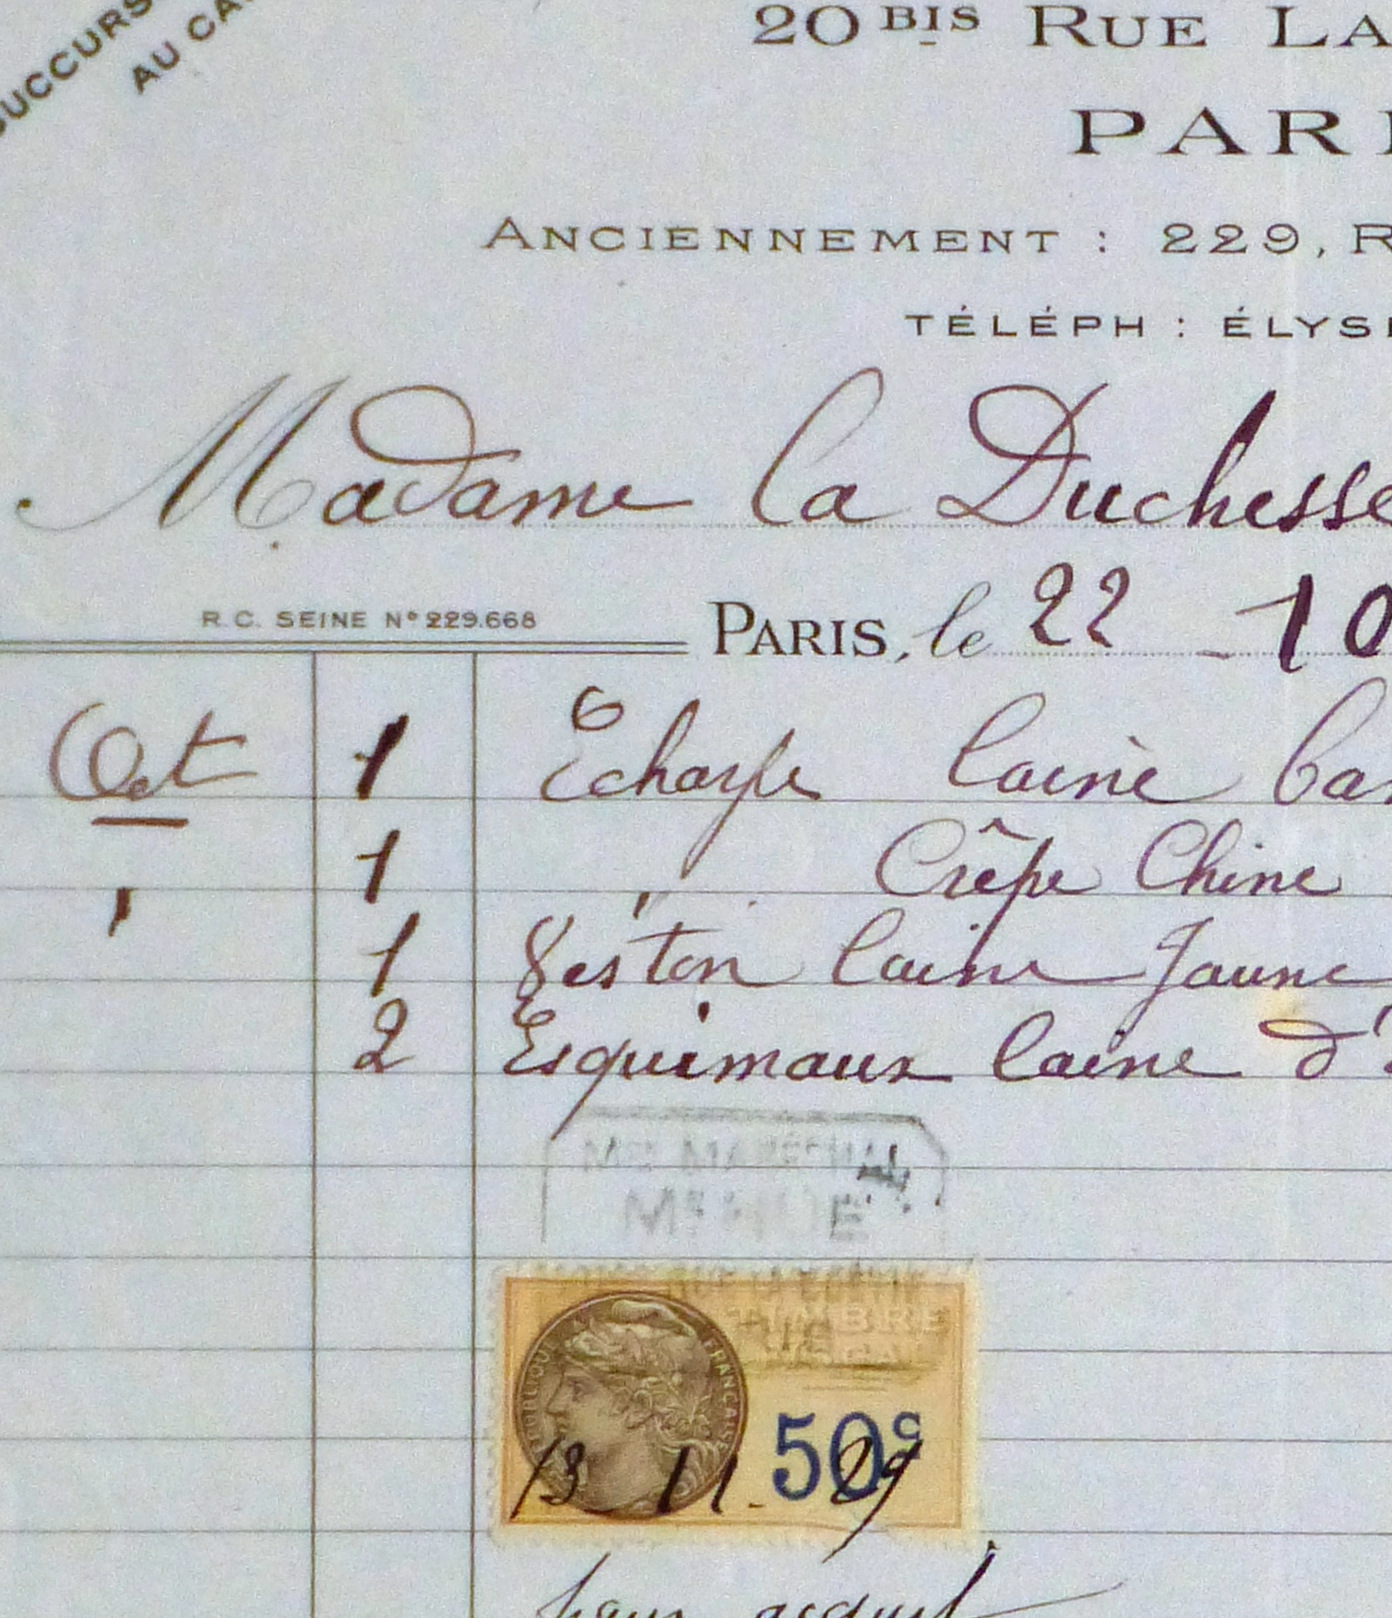 SUCCURS
AU CA
20 BIS RUE LA
PARI
ANCIENNEMENT : 229, R
TÉLÉPH : ÉLYSÉ
Madame la Duchesse
R.C. SEINE N° 229.668
PARIS, le 22 - 10
Oct 1 Echarpe laine
1 " Crêpe Chine
" 1 Veston laine Jaune
2 Esquimaux laine d'
MARÉCHAL
TIMBRE
RÉPUBLIQUE FRANÇAISE
50c
13 11 - 29
pour acquit